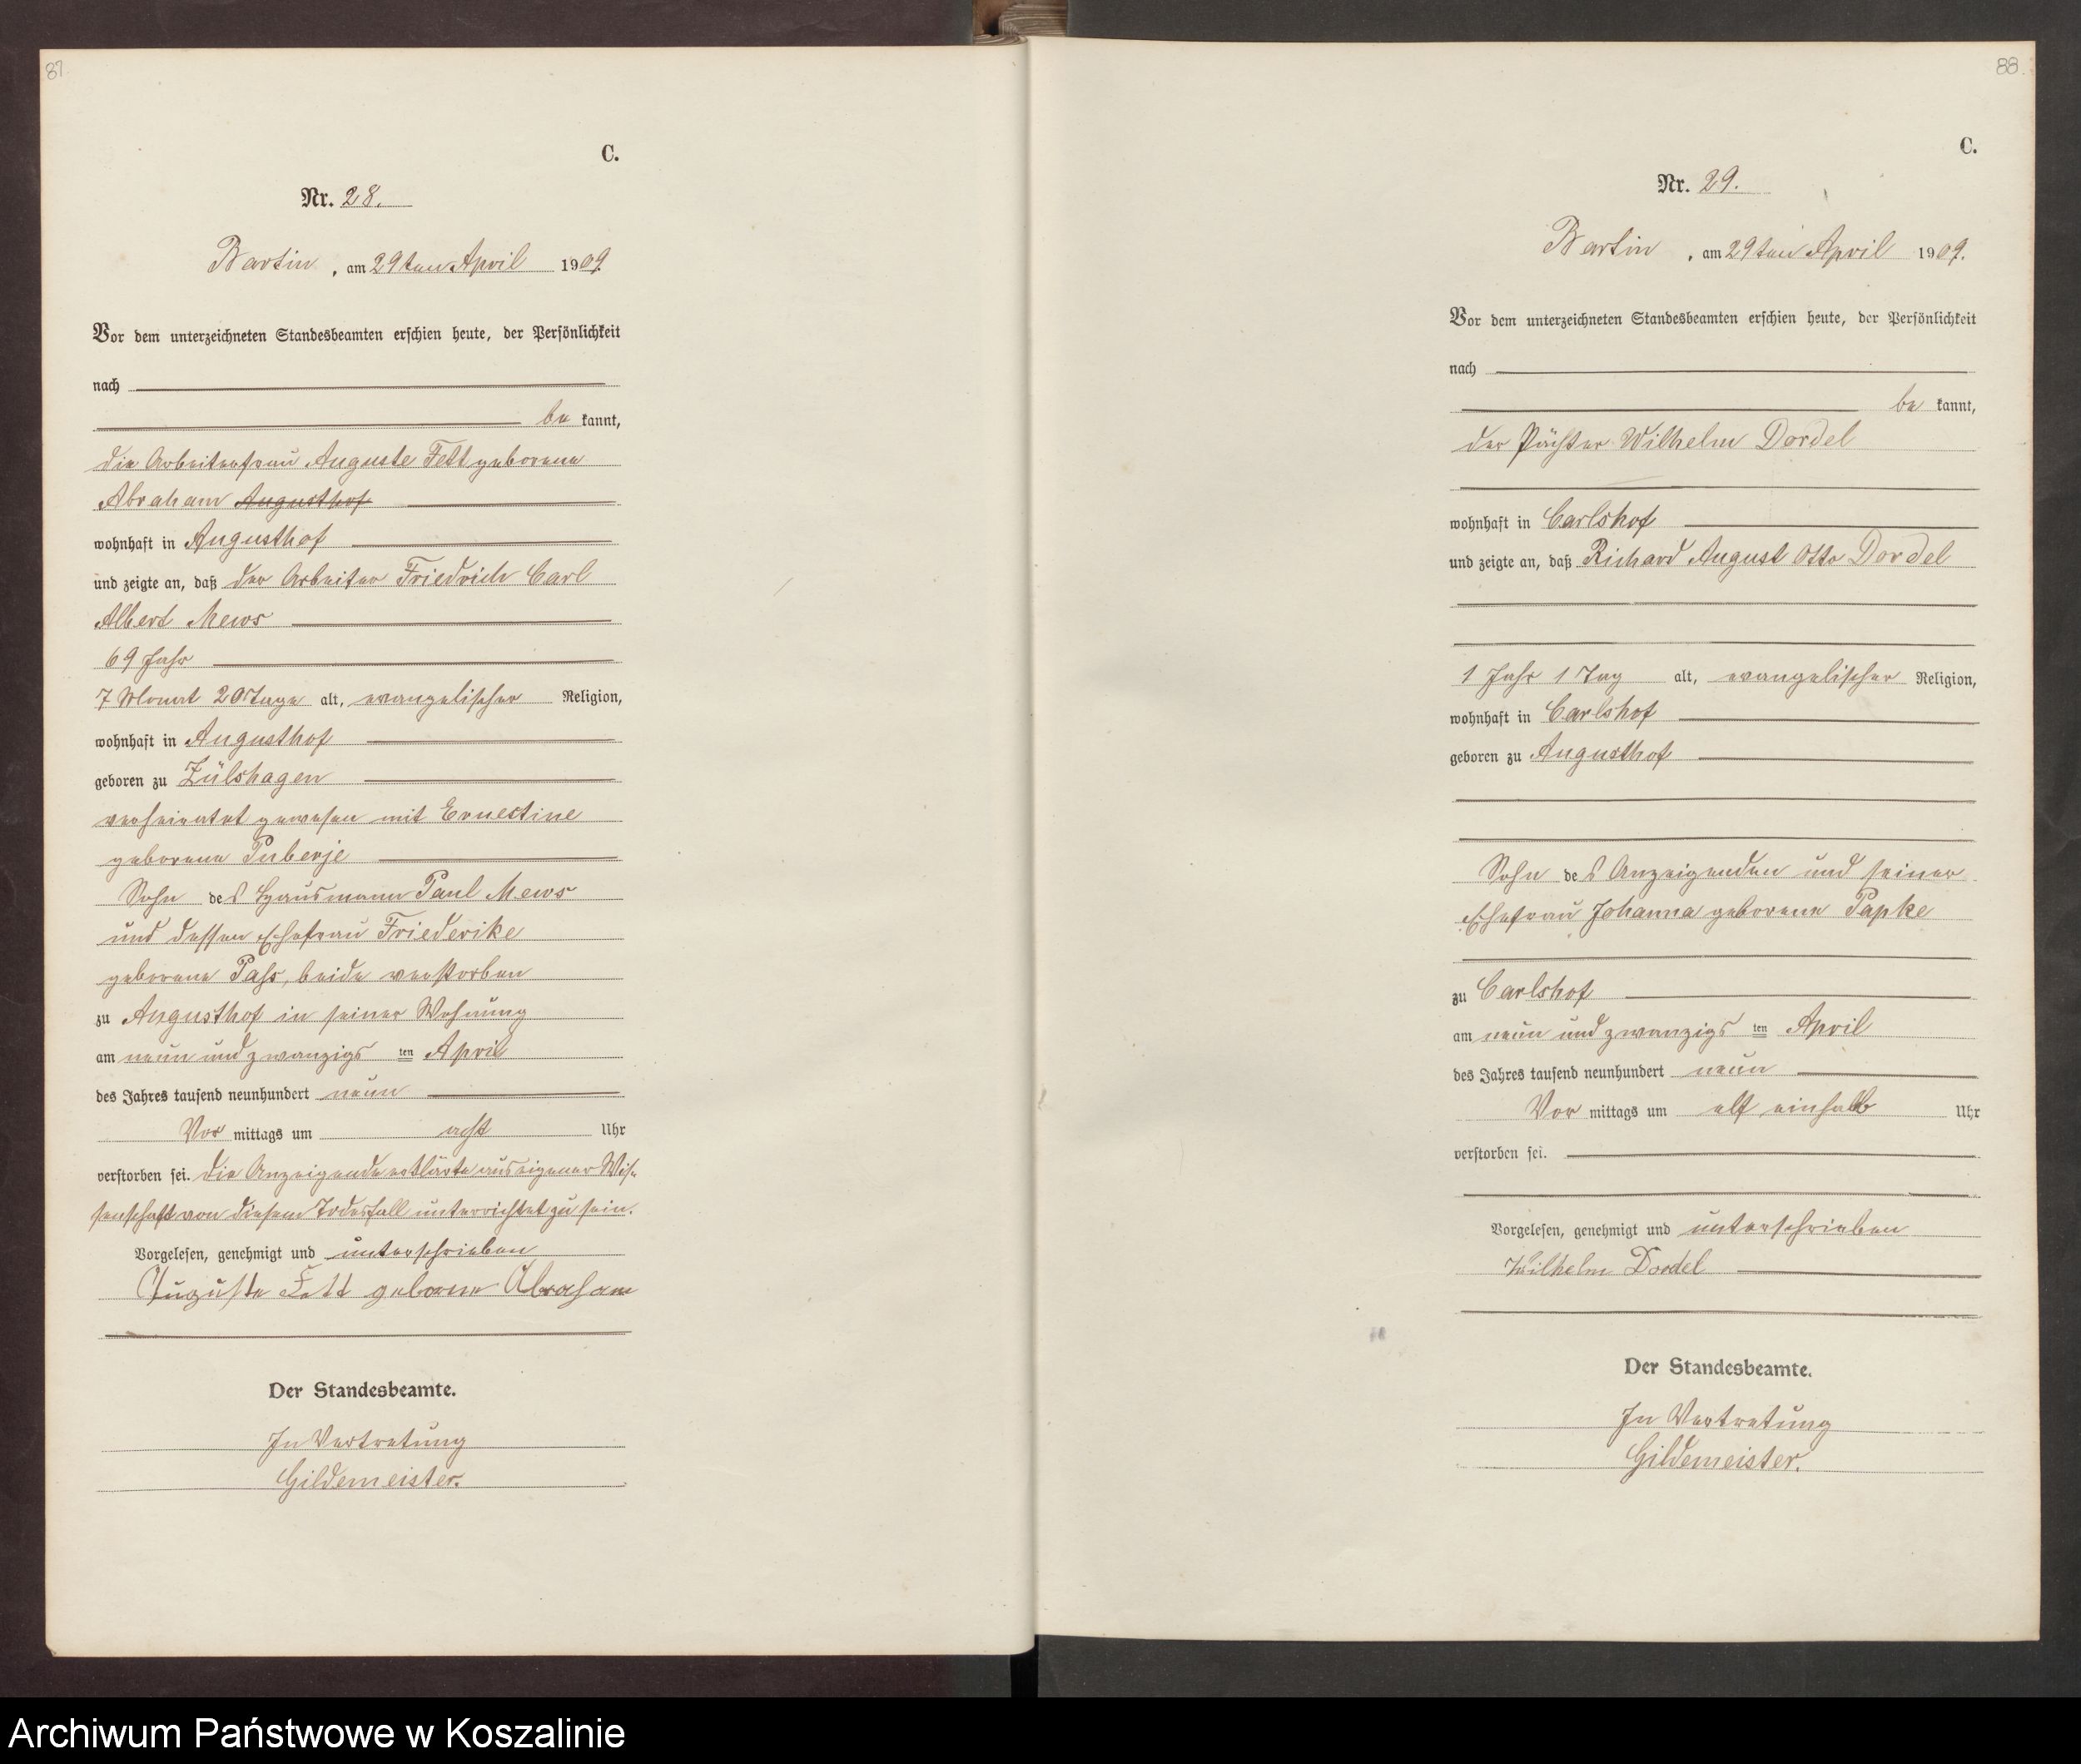 87
C.
Nr. 28.
Bartin, am 29ten April 1909.
Vor dem unterzeichneten Standesbeamten erschien heute, der Persönlichkeit
nach
be kannt,
die Arbeiterfrau Auguste Fett geborene
Abraham Augusthof
wohnhaft in Augusthof
und zeigte an, daß der Arbeiter Friedrich Carl
Albert Mews
69 Jahr
7 Monat 20 Tage alt, evangelischer Religion,
wohnhaft in Augusthof
geboren zu Zülshagen
verheiratet gewesen mit Ernestine
geborene Puberje
Sohn des Hausmann Paul Mews
und dessen Ehefrau Friederike
geborene Pahs, beide verstorben
zu Augusthof in seiner Wohnung
am neun und zwanzigsten April
des Jahres tausend neunhundert neun
Vor mittags um acht Uhr
verstorben sei. Die Anzeigende erklärte aus eigener Wis-
senschaft von diesem Todesfall unterrichtet zu sein.
Vorgelesen, genehmigt und unterschrieben
Auguste Fett geborne Abraham
Der Standesbeamte.
In Vertretung
Gildemeister.
88.
C.
Nr. 29.
Bartin, am 29ten April 1909.
Vor dem unterzeichneten Standesbeamten erschien heute, der Persönlichkeit
nach
be kannt,
der Pächter Wilhelm Dordel
wohnhaft in Carlshof
und zeigte an, daß Richard August Otto Dordel
1 Jahr 1 Tag alt, evangelischer Religion,
wohnhaft in Carlshof
geboren zu Augusthof
Sohn des Anzeigenden und seiner
Ehefrau Johanna geborene Papke
zu Carlshof
am neun und zwanzigsten April
des Jahres tausend neunhundert neun
Vor mittags um elf einhalb Uhr
verstorben sei.
Vorgelesen, genehmigt und unterschrieben
Wilhelm Dordel
Der Standesbeamte.
In Vertretung
Gildemeister.
Archiwum Państwowe w Koszalinie